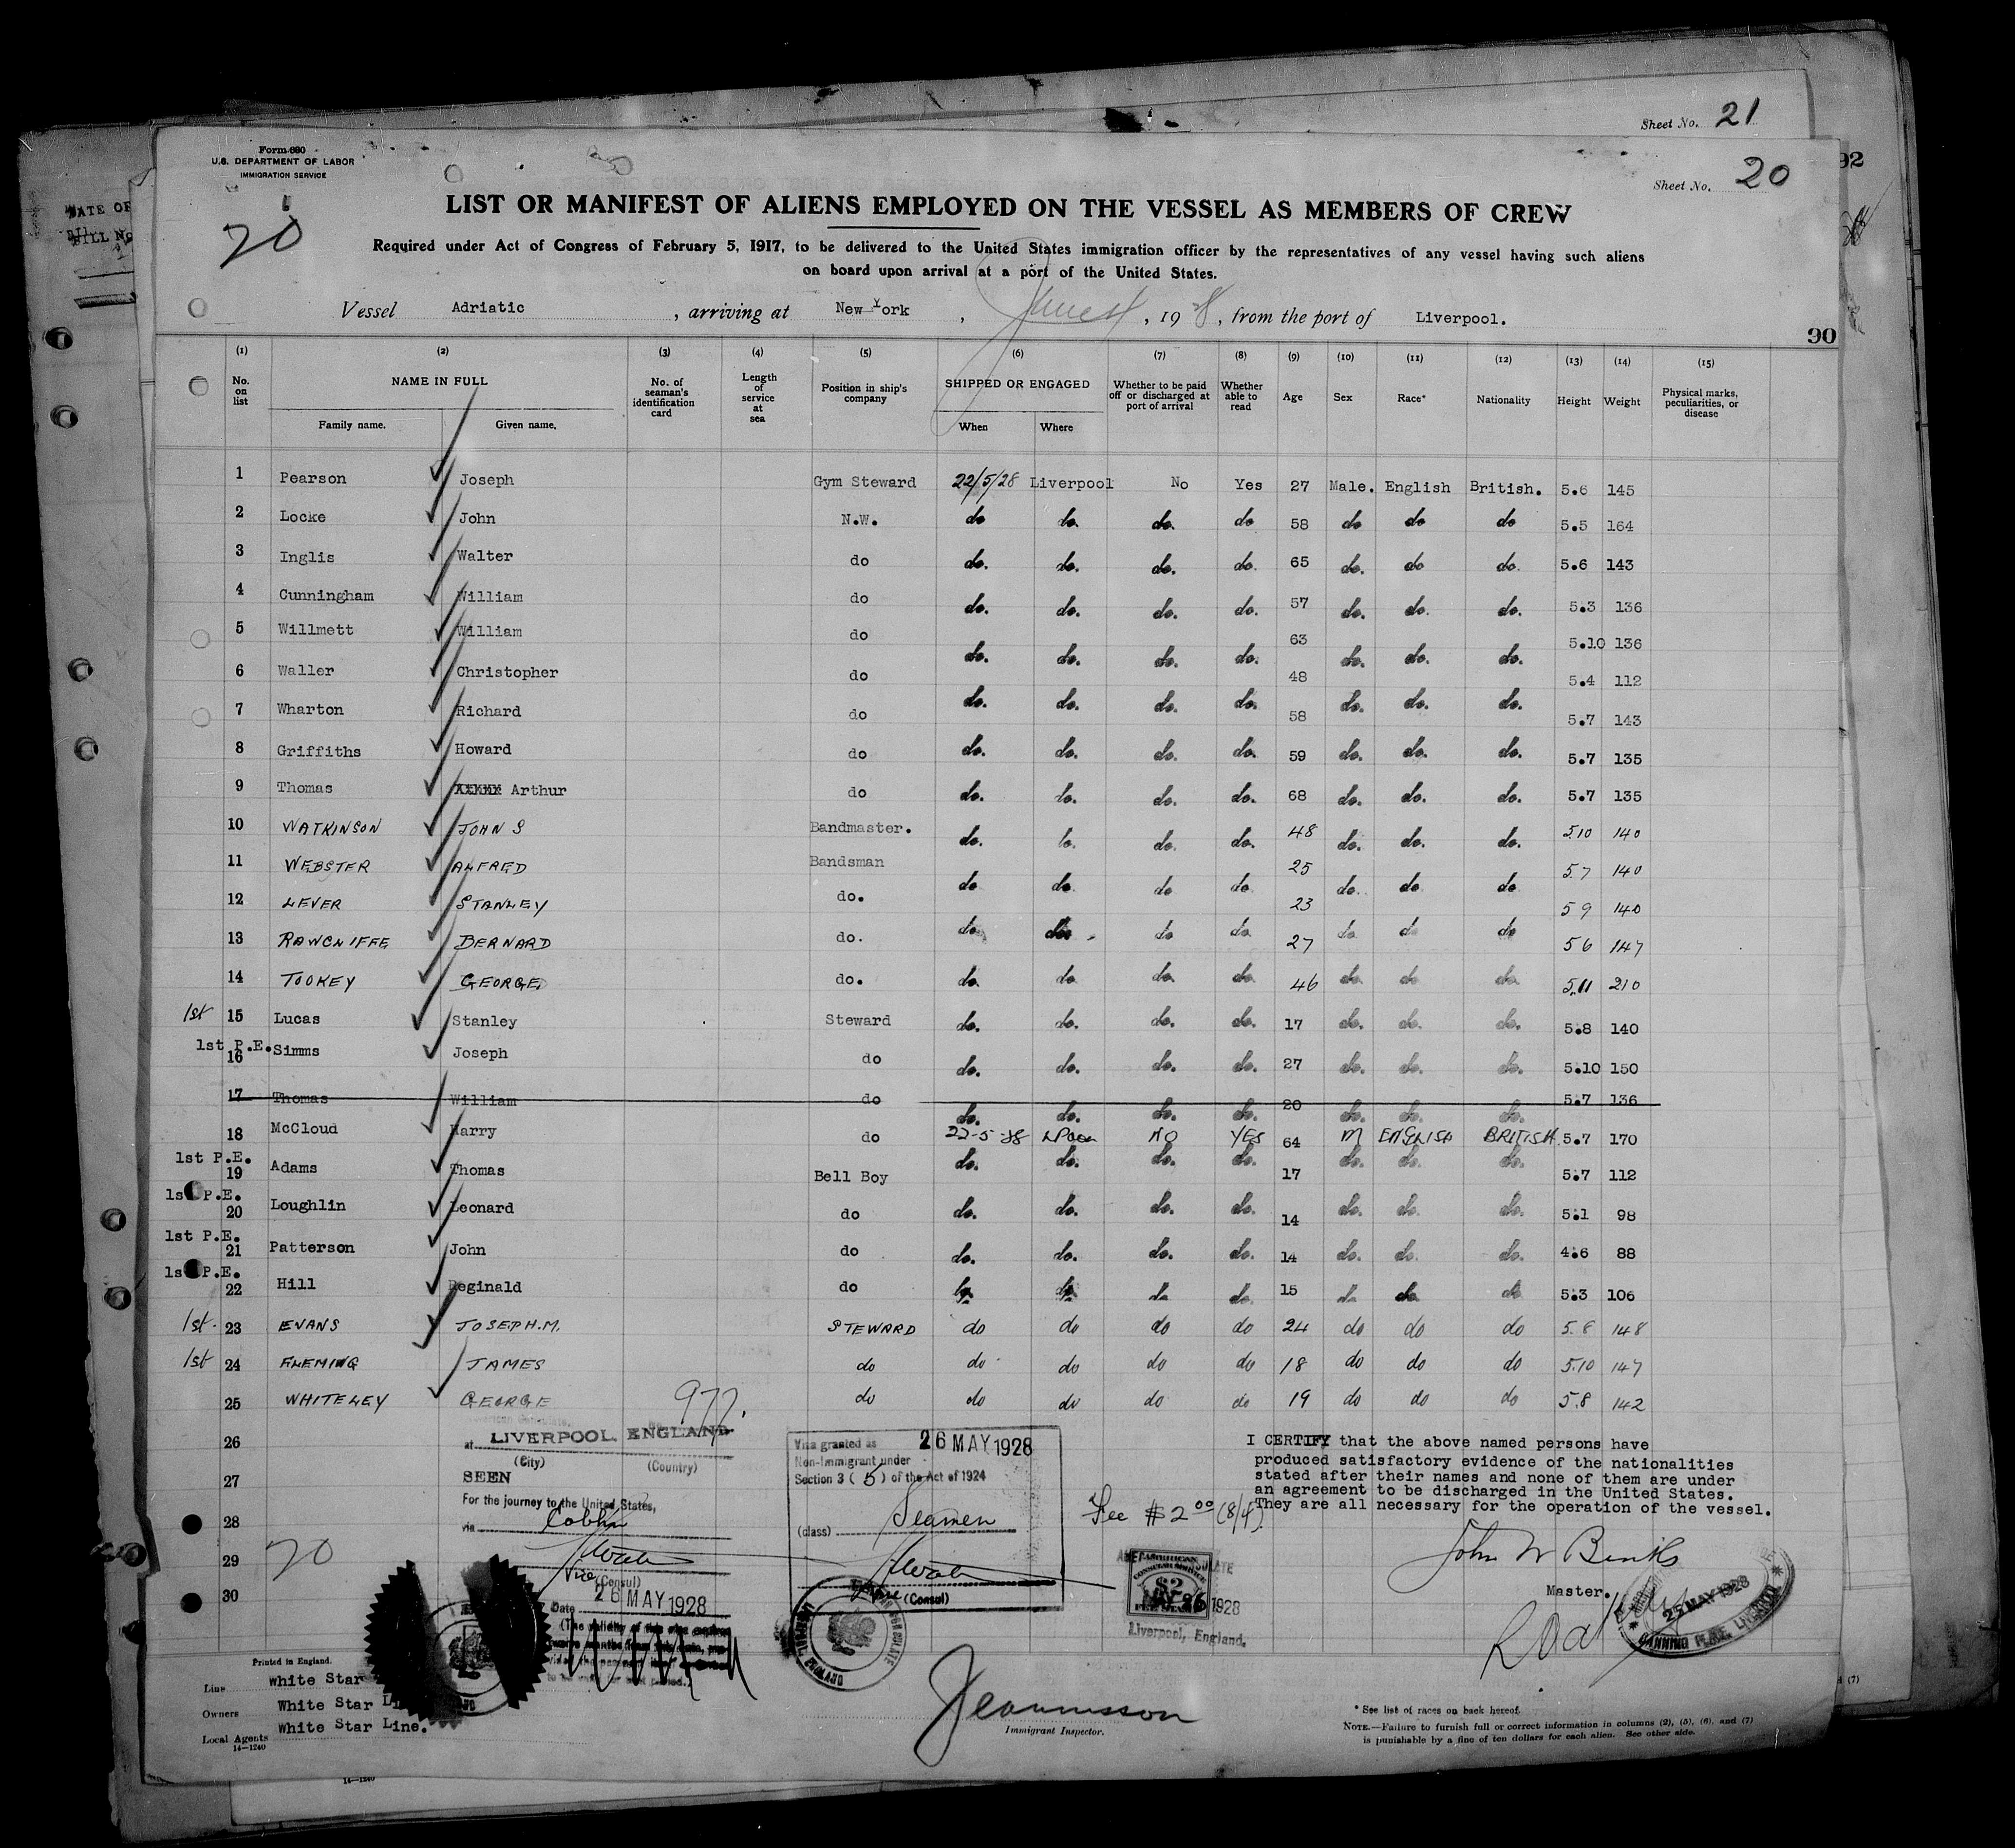 Sheet No. 21
92
DATE OF
BILL No
Form 680
U.S. DEPARTMENT OF LABOR
IMMIGRATION SERVICE
Sheet No. 20
20
LIST OR MANIFEST OF ALIENS EMPLOYED ON THE VESSEL AS MEMBERS OF CREW
Required under Act of Congress of February 5, 1917, to be delivered to the United States immigration officer by the representatives of any vessel having such aliens
on board upon arrival at a port of the United States.
Vessel Adriatic, arriving at New York, June 4, 1928, from the port of Liverpool.
30
(1) (2) (3) (4) (5) (6) (7) (8) (9) (10) (11) (12) (13) (14) (15)
No. on list NAME IN FULL Family name. Given name. No. of seaman's identification card Length of service at sea Position in ship's company SHIPPED OR ENGAGED When Where Whether to be paid off or discharged at port of arrival Whether able to read Age Sex Race* Nationality Height Weight Physical marks, peculiarities, or disease
1 Pearson Joseph Gym Steward 22/5/28 Liverpool No Yes 27 Male. English British. 5.6 145
2 Locke John N.W. do do. do. do 58 do do do 5.5 164
3 Inglis Walter do do. do. do. do. 65 do. do do. 5.6 143
4 Cunningham William do do. do. do. do. 57 do. do. do. 5.3 136
5 Willmett William do do. do. do. do. 63 do. do. do. 5.10 136
6 Waller Christopher do do. do. do. do. 48 do. do. do. 5.4 112
7 Wharton Richard do do. do. do. do. 58 do. do. do. 5.7 143
8 Griffiths Howard do do. do. do. do. 59 do. do. do. 5.7 135
9 Thomas Arthur do do. do. do. do. 68 do. do. do. 5.7 135
10 WATKINSON JOHN S Bandmaster. do. do. do. do. 48 do. do. do. 5.10 140
11 WEBSTER ALFRED Bandsman do do. do do. 25 do. do do 5.7 140
12 LEVER STANLEY do. do. do. do do. 23 do do do 5 9 140
13 RAWCLIFFE BERNARD do. 27 5 6 147
14 TOOKEY GEORGE do. do. do do. do. 46 do. do do. 5.11 210
1st 15 Lucas Stanley Steward do. do. do. do. 17 do. do. do. 5.8 140
1st P.E. 16 Simms Joseph do do. do. do. do. 27 do. do. do. 5.10 150
17 Thomas William do do. do. do. do. 20 do. do. do. 5.7 136
18 McCloud Harry do 22-5-28 LPool NO YES 64 M ENGLISH BRITISH 5.7 170
1st P.E. 19 Adams Thomas Bell Boy do. do. do. do. 17 do. do. do. 5.7 112
1st P.E. 20 Loughlin Leonard do do. do. do. do. 14 do. do. do. 5.1 98
1st P.E. 21 Patterson John do do. do. do. do. 14 do. do. do. 4.6 88
1st P.E. 22 Hill Reginald do do. do. do. do. 15 do. do. do 5.3 106
1st. 23 EVANS JOSEPH.M. STEWARD do do do do 24 do do do 5.8 148
1st 24 FLEMING JAMES do do do do do 18 do do do 5.10 147
25 WHITELEY GEORGE do do do do do 19 do do do 5.8 142
26
27
28
29
30
977.
at LIVERPOOL, ENGLAND.
(City) (Country)
SEEN
For the journey to the United States,
via Cobh
Vice (Consul)
Date 26 MAY 1928
Visa granted as 26 MAY 1928
Non-Immigrant under
Section 3 (5) of the Act of 1924
(class) Seamen
(Consul)
Fee $2.00 (8/4).
AMERICAN
CONSULAR SERVICE
$2
MAY 26 1928
Liverpool, England.
I CERTIFY that the above named persons have
produced satisfactory evidence of the nationalities
stated after their names and none of them are under
an agreement to be discharged in the United States.
They are all necessary for the operation of the vessel.
John W Binks
Master.
25 MAY 1928
CANNING PLACE, LIVERPOOL
20
Printed in England.
Line White Star
Owners White Star Line
Local Agents White Star Line.
14-1240
Immigrant Inspector.
* See list of races on back hereof.
NOTE.—Failure to furnish full or correct information in columns (2), (5), (6), and (7)
is punishable by a fine of ten dollars for each alien. See other side.
(7)
14-1240